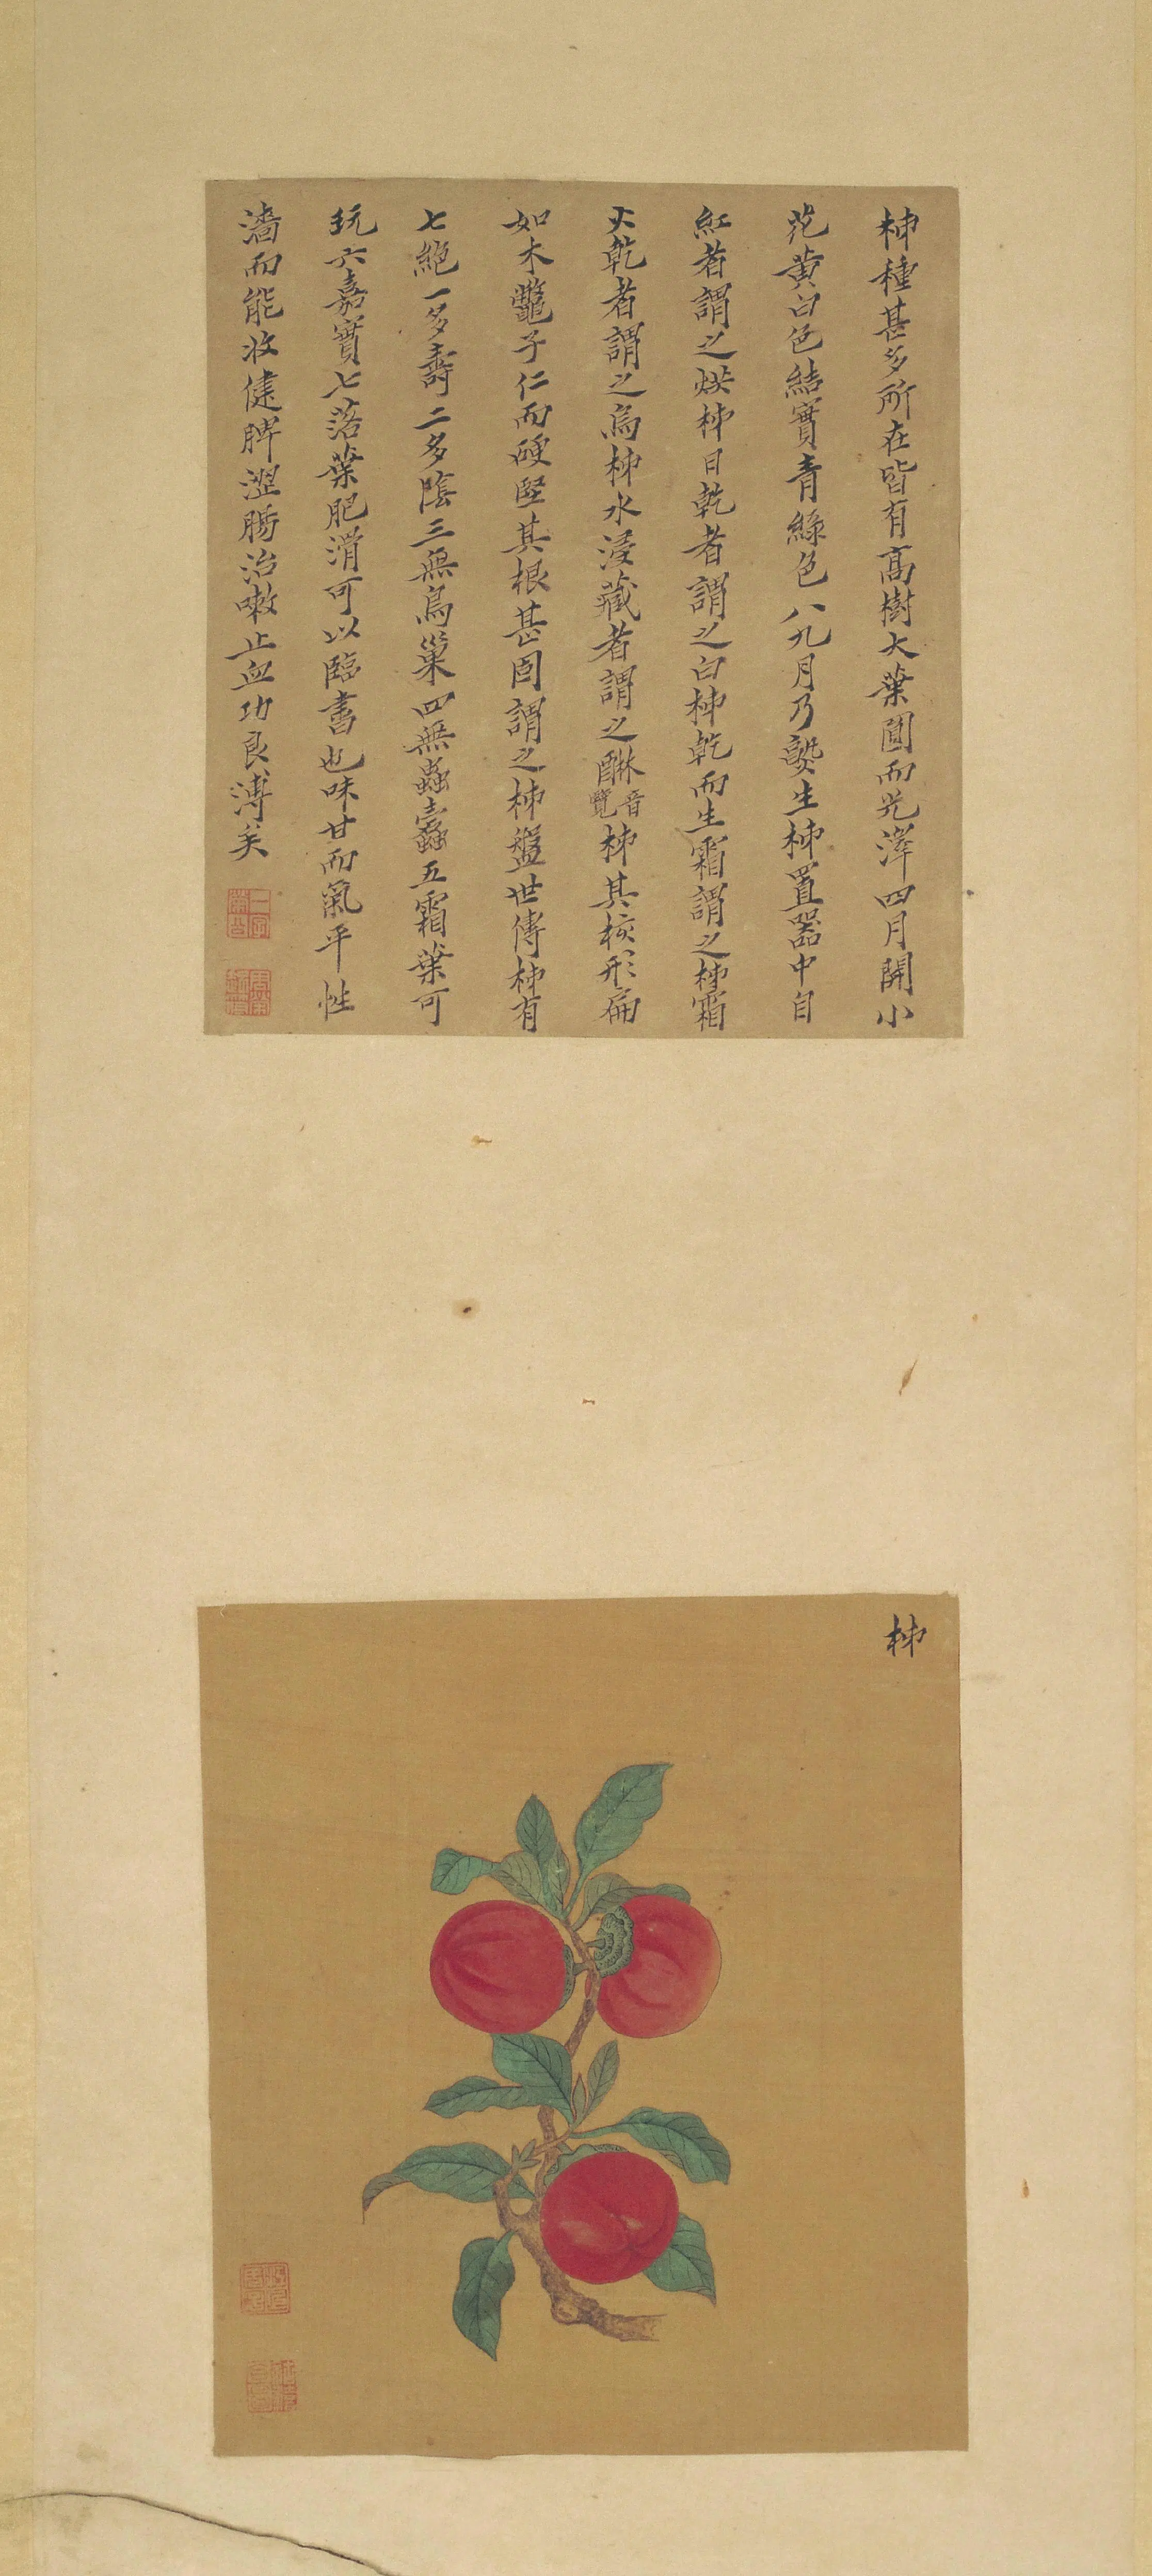 柹種甚多所在皆有高樹大葉圓而光澤四月開小
花黃白色結實青綠色八九月乃熟生柹置器中自
紅者謂之烘柹日乾者謂之白柹乾而生霜謂之柹霜
火乾者謂之烏柹水浸藏者謂之醂音覽柹其核形扁
如木鼈子仁而硬堅其根甚固謂之柹盤世傳柹有
七絕一多壽二多陰三無鳥巢四無蟲蠹五霜葉可
玩六嘉實七落葉肥滑可以臨書也味甘而氣平性
濇而能收健脾澀腸治嗽止血功良溥矣
柹